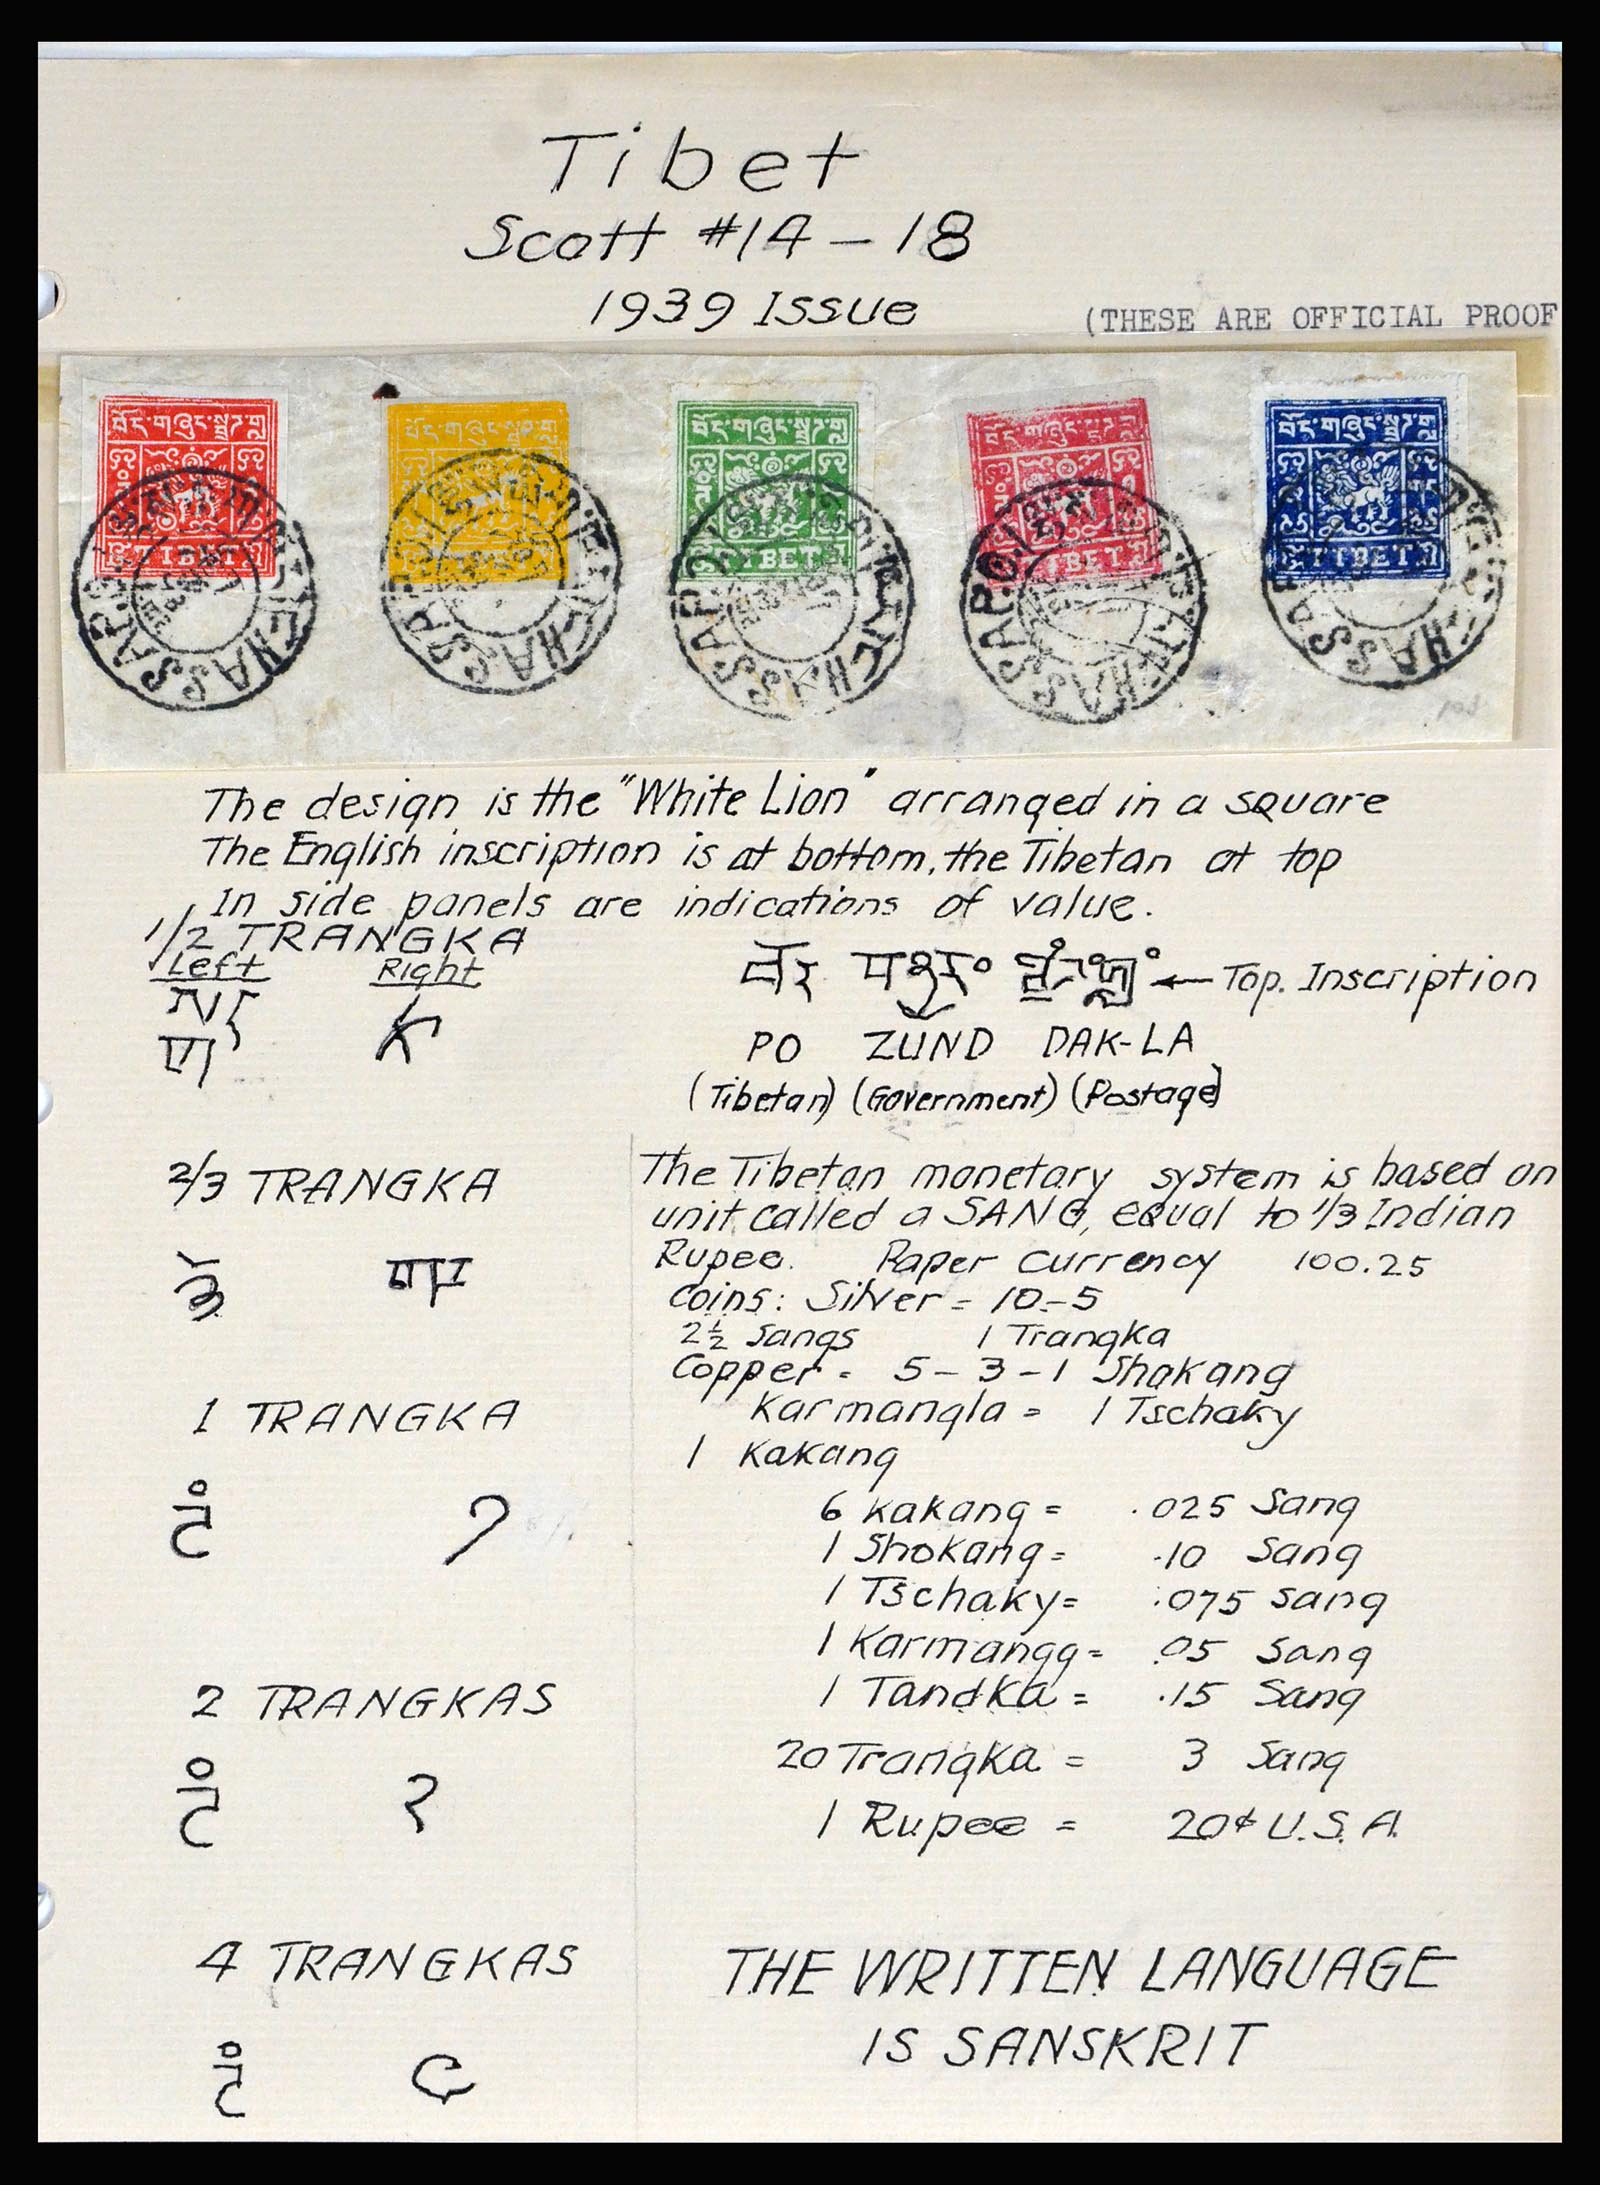 Tibet
Scott #14 – 18
1939 Issue
(THESE ARE OFFICIAL PROOF
བོད་གཞུང་སྦྲག་ བོད་གཞུང་སྦྲག་ བོད་གཞུང་སྦྲག་ བོད་གཞུང་སྦྲག་ བོད་གཞུང་སྦྲག་
TIBET TIBET TIBET TIBET TIBET
LHASSA P.O. LHASSA P.O. LHASSA P.O. LHASSA P.O. LHASSA
The design is the "White Lion" arranged in a square
The English inscription is at bottom, the Tibetan at top
In side panels are indications of value.
1/2 TRANGKA
Left Right
← Top. Inscription
PO ZUND DAK-LA
(Tibetan) (Government) (Postage)
2/3 TRANGKA
1 TRANGKA
༡
2 TRANGKAS
༢
4 TRANGKAS
The Tibetan monetary system is based on
unit called a SANG, equal to 1/3 Indian
Rupee. Paper Currency 100.25
Coins: Silver = 10 - 5
2½ Sangs 1 Trangka
Copper = 5 – 3 – 1 Shakang
Karmangla = 1 Tschaky
1 Kakang
6 Kakang = .025 Sang
1 Shokang = .10 Sang
1 Tschaky = .075 Sang
1 Karmangg = .05 Sang
1 Tandka = .15 Sang
20 Trangka = 3 Sang
1 Rupee = 20¢ U.S.A.
THE WRITTEN LANGUAGE
IS SANSKRIT